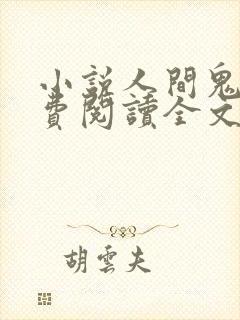 小說人間鬼
費閱讀全文
胡雲夫